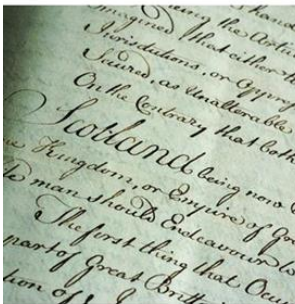 being the
imagined, that either
Jurisdictions, or
Secured, as Unalterable
On the Contrary that both
Scotland being now
Kingdom, or Empire of
man should Endeavour to
The first thing that
part of Great